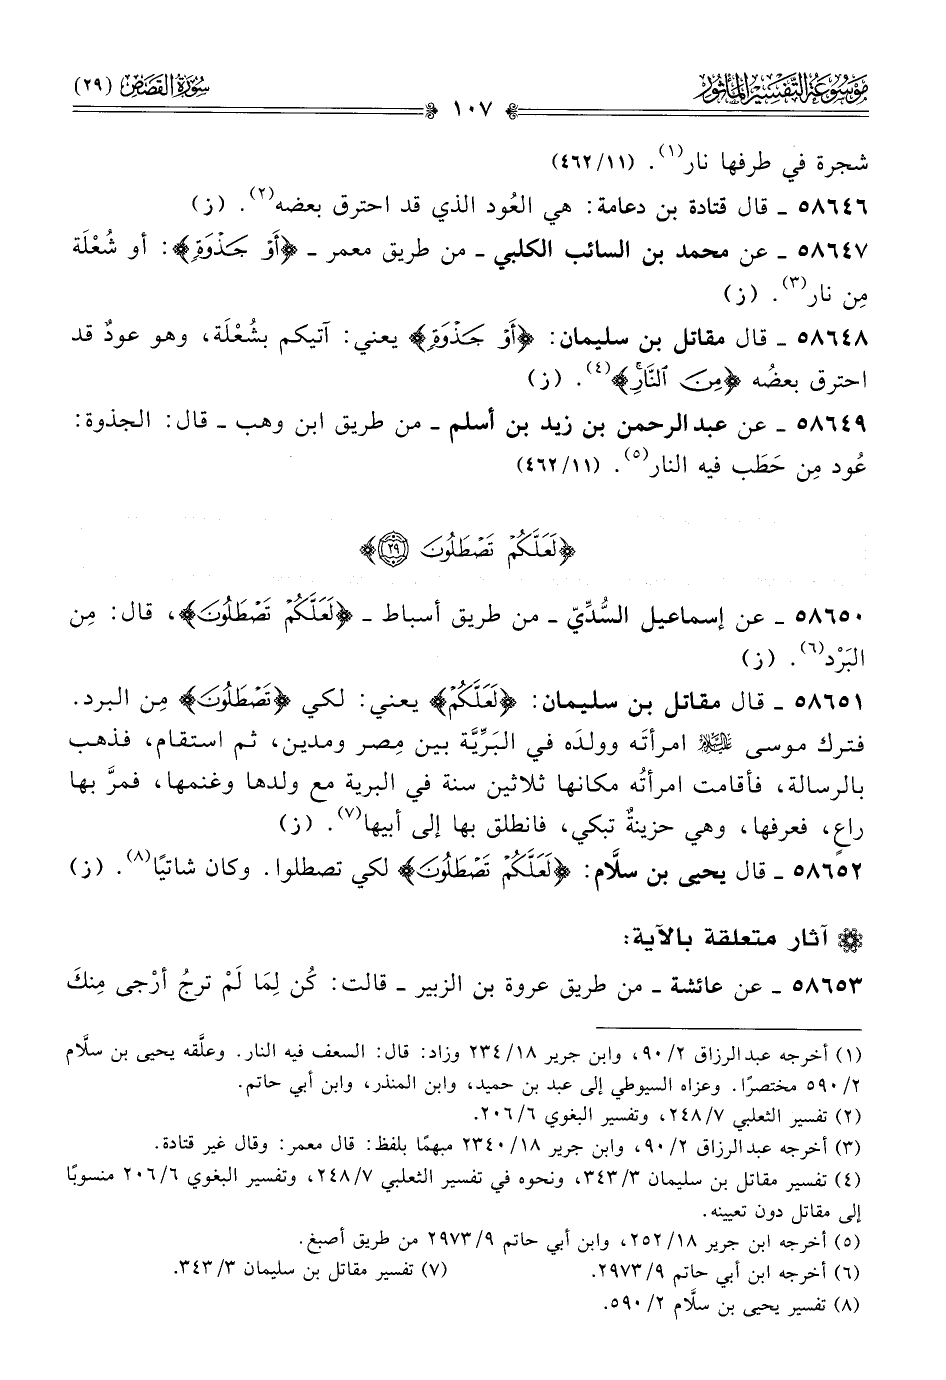 مَوْسُوعَة التَّفْسِير المَأْثُور
سُورَة القَصَص (٢٩)
١٠٧
شجرة في طرفها نار(١). (٤٦٢/١١)
٥٨٦٤٦ ـ قال قتادة بن دعامة: هي العُود الذي قد احترق بعضه(٢). (ز)
٥٨٦٤٧ ـ عن محمد بن السائب الكلبي ـ من طريق معمر ـ ﴿أَوْ جَذْوَةٍ﴾: أو شُعْلَة
مِن نار(٣). (ز)
٥٨٦٤٨ ـ قال مقاتل بن سليمان: ﴿أَوْ جَذْوَةٍ﴾ يعني: آتيكم بشُعْلَة، وهو عودٌ قد
احترق بعضُه ﴿مِنَ ٱلنَّارِ﴾(٤). (ز)
٥٨٦٤٩ ـ عن عبدالرحمن بن زيد بن أسلم ـ من طريق ابن وهب ـ قال: الجذوة:
عُود مِن حَطَب فيه النار(٥). (٤٦٢/١١)
﴿لَعَلَّكُمْ تَصْطَلُونَ ٢٩﴾
٥٨٦٥٠ ـ عن إسماعيل السُّدِّيّ ـ من طريق أسباط ـ ﴿لَعَلَّكُمْ تَصْطَلُونَ﴾، قال: مِن
البَرْد(٦). (ز)
٥٨٦٥١ ـ قال مقاتل بن سليمان: ﴿لَعَلَّكُمْ﴾ يعني: لكي ﴿تَصْطَلُونَ﴾ مِن البرد.
فترك موسى عليه السلام امرأتَه وولدَه في البَرِّيَّة بين مِصر ومدين، ثم استقام، فذهب
بالرسالة، فأقامت امرأتُه مكانها ثلاثين سنة في البرية مع ولدها وغنمها، فمرَّ بها
راعٍ، فعرفها، وهي حزينةٌ تبكي، فانطلق بها إلى أبيها(٧). (ز)
٥٨٦٥٢ ـ قال يحيى بن سلَّام: ﴿لَعَلَّكُمْ تَصْطَلُونَ﴾ لكي تصطلوا. وكان شاتيًا(٨). (ز)
آثار متعلقة بالآية:
٥٨٦٥٣ ـ عن عائشة ـ من طريق عروة بن الزبير ـ قالت: كُن لِمَا لَمْ ترجُ أرْجى مِنكَ
(١) أخرجه عبدالرزاق ٢/ ٩٠، وابن جرير ١٨/ ٢٣٤ وزاد: قال: السعف فيه النار. وعلَّقه يحيى بن سلَّام
٢/ ٥٩٠ مختصرًا. وعزاه السيوطي إلى عبد بن حميد، وابن المنذر، وابن أبي حاتم.
(٢) تفسير الثعلبي ٧/ ٢٤٨، وتفسير البغوي ٦/ ٢٠٦.
(٣) أخرجه عبدالرزاق ٢/ ٩٠، وابن جرير ١٨/ ٢٣٤٠ مبهمًا بلفظ: قال معمر: وقال غير قتادة.
(٤) تفسير مقاتل بن سليمان ٣/ ٣٤٣، ونحوه في تفسير الثعلبي ٧/ ٢٤٨، وتفسير البغوي ٦/ ٢٠٦ منسوبًا
إلى مقاتل دون تعيينه.
(٥) أخرجه ابن جرير ١٨/ ٢٥٢، وابن أبي حاتم ٩/ ٢٩٧٣ من طريق أصبغ.
(٦) أخرجه ابن أبي حاتم ٩/ ٢٩٧٣. (٧) تفسير مقاتل بن سليمان ٣/ ٣٤٣.
(٨) تفسير يحيى بن سلَّام ٢/ ٥٩٠.